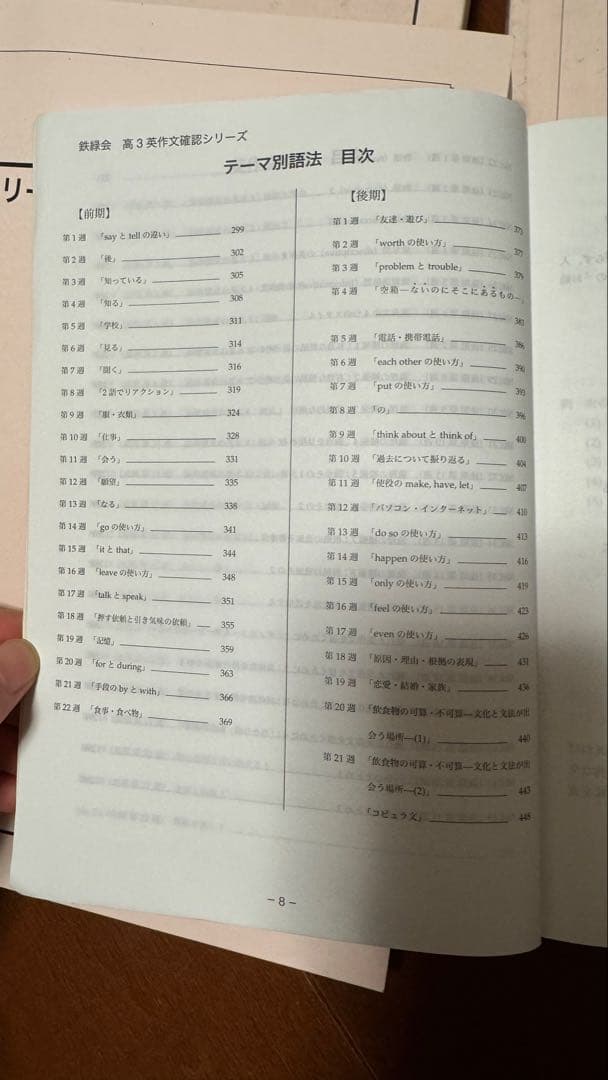 リー
鉄緑会 高3英作文確認シリーズ
テーマ別語法 目次
【前期】
第1週 「say と tell の違い」 299
第2週 「後」 302
第3週 「知っている」 305
第4週 「知る」 308
第5週 「学校」 311
第6週 「見る」 314
第7週 「聞く」 316
第8週 「2語でリアクション」 319
第9週 「服・衣類」 324
第10週 「仕事」 328
第11週 「会う」 331
第12週 「願望」 335
第13週 「なる」 338
第14週 「go の使い方」 341
第15週 「it と that」 344
第16週 「leave の使い方」 348
第17週 「talk と speak」 351
第18週 「押す依頼と引き気味の依頼」 355
第19週 「記憶」 359
第20週 「for と during」 363
第21週 「手段の by と with」 366
第22週 「食事・食べ物」 369
【後期】
第1週 「友達・遊び」 373
第2週 「worth の使い方」 377
第3週 「problem と trouble」 379
第4週 「空箱―ないのにそこにあるもの―」
383
第5週 「電話・携帯電話」 386
第6週 「each other の使い方」 390
第7週 「put の使い方」 393
第8週 「の」 396
第9週 「think about と think of」 400
第10週 「過去について振り返る」 404
第11週 「使役の make, have, let」 407
第12週 「パソコン・インターネット」 410
第13週 「do so の使い方」 413
第14週 「happen の使い方」 416
第15週 「only の使い方」 419
第16週 「feel の使い方」 423
第17週 「even の使い方」 426
第18週 「原因・理由・根拠の表現」 431
第19週 「恋愛・結婚・家族」 436
第20週 「飲食物の可算・不可算―文化と文法が出
会う場所―(1)」 440
第21週 「飲食物の可算・不可算―文化と文法が出
会う場所―(2)」 443
「コピュラ文」 448
－8－